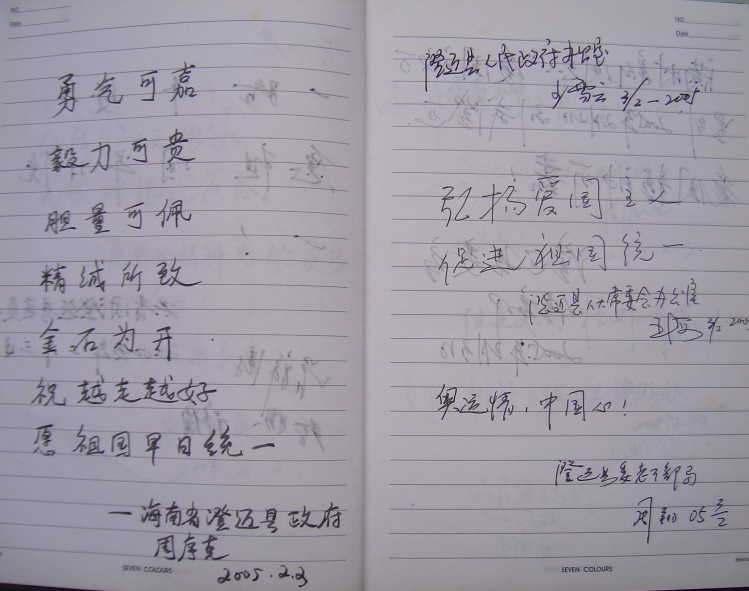 NO
Date
勇气可嘉
毅力可贵
胆量可佩
精诚所致
金石为开
祝越走越好
愿祖国早日统一
—海南省澄迈县政府
2005.2.3
SEVEN COLOURS
NO
Date
澄迈县人民政府办公室
3/2-2005
弘扬爱国主义
促进祖国统一
澄迈县人大常委会办公室
3/2-2005
奥运情,中国心!
澄迈县委老干部局
SEVEN COLOURS